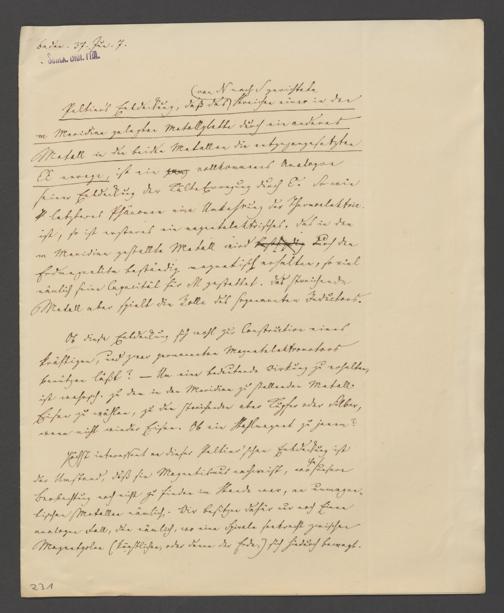 baden. 37. Jun. 7.
(von N nach S gerichtete
Peltier's Entdeckung, daß das Streichen einer in den
m Meridian gelegten Metallplatte durch ein anderes
Metall in die beiden Metallen die entgegengesetzten
E erregt, ist ein vollkommenes Analogon
seiner Entdeckung der Kälteerzeugung durch E. So wie
letzteres Phänomen eine Umkehrung der Thermoelektric.
ist, so ist ersteres ein magnetelektrisches. Das in den
m Meridian gestellte Metall wird durch den
Erdmagnetism beständig magnetisch erhalten, so viel
nämlich seine Capacität für M gestattet. Das streichende
Metall aber spielt die Rolle des sogenannten Inductors.
Ob diese Entdeckung sich wohl zur Construction eines
kräftigen, und zwar permanenten Magnetelektromotors
benützen läßt? — Um eine bedeutende Wirkung zu erhalten,
ist wahrsch. zu den in den Meridian zu stellenden Metall.
Eisen zu wählen, zu den streichenden aber Kupfer oder Silber,
wenn nicht wieder Eisen. Ob ein Stahlmagnet zu jenem?
Höchst interessant an dieser Peltier'schen Entdeckung ist
der Umstand, daß sie Magnetismus nachweist, wo frühere
Beobachtung noch nicht zu finden im Stande war, an unmagne-
tischen Metallen nämlich. Wir besitzen dafür nur noch Einen
analogen Fall, die nämlich, wo eine Spirale senkrecht zwischen
Magnetpolen (künstlichen, oder denen der Erde,) sich hindurch bewegt.
231